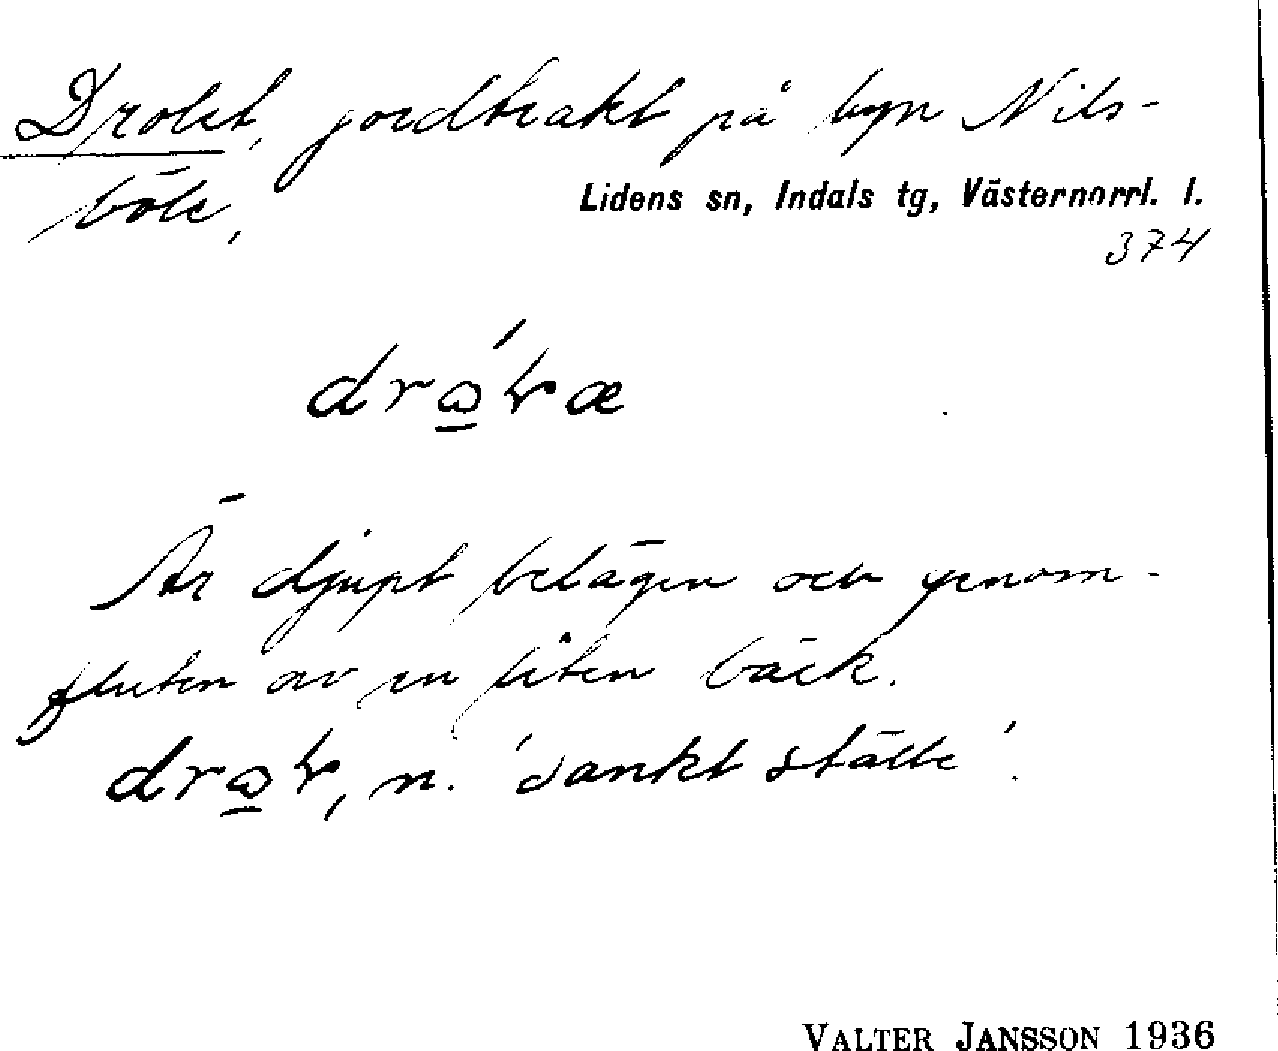 Drolet, jordtrakt på byn Nils-
böle,
Lidens sn, Indals tg, Västernorrl. l.
374
Är djupt belägen och genom-
fluten av en liten bäck.
n. 'sankt ställe'.
VALTER JANSSON 1936